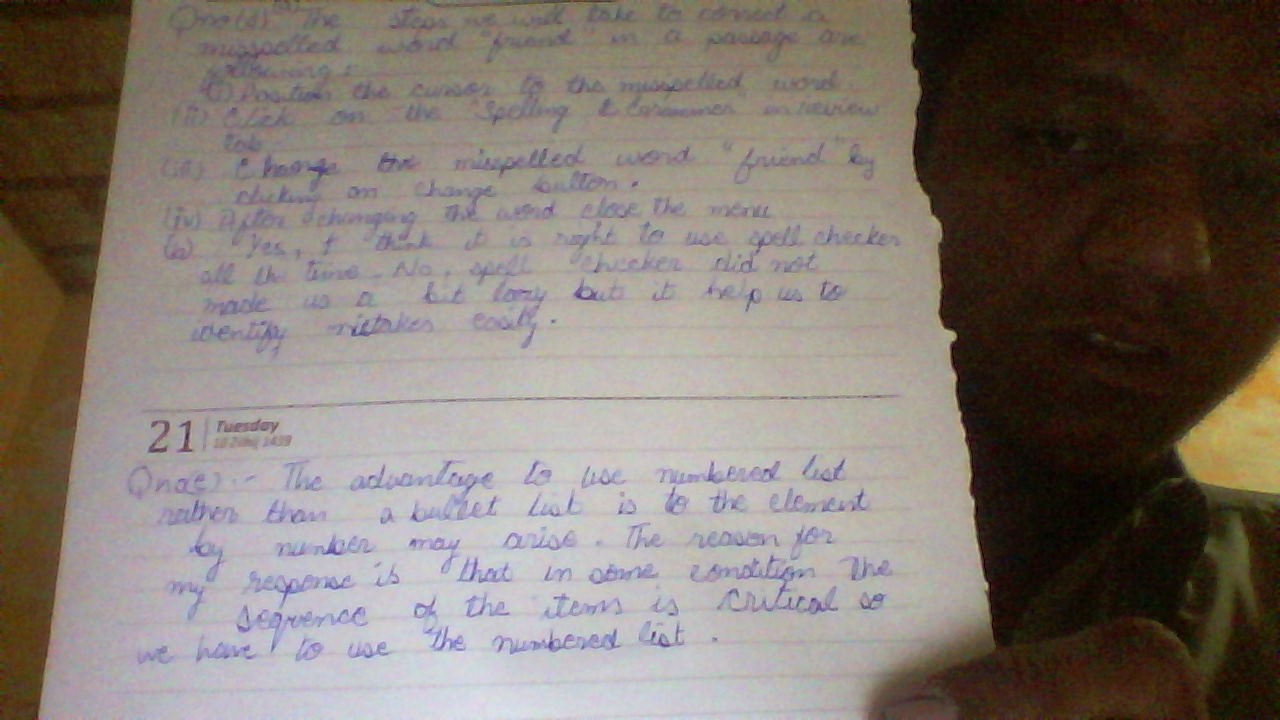 Qno(d): The steps we will take to correct a
misspelled word "friend" in a passage are
following:
(i) Position the cursor to the misspelled word.
(ii) Click on the "Spelling & Grammer in review
tab.
(iii) Change the misspelled word "friend" by
clicking on change button.
(iv) After changing the word close the menu
(a) Yes, I think it is right to use spell checker
all the time. No, spell checker did not
made us a bit lazy but it help us to
identify mistakes easily.
21 Tuesday
10 Zilhij 1439
Qno(e):- The advantage to use numbered list
rather than a bullet list is to the element
by number may arise. The reason for
my response is that in some condition The
sequence of the items is critical so
we have to use the numbered list.